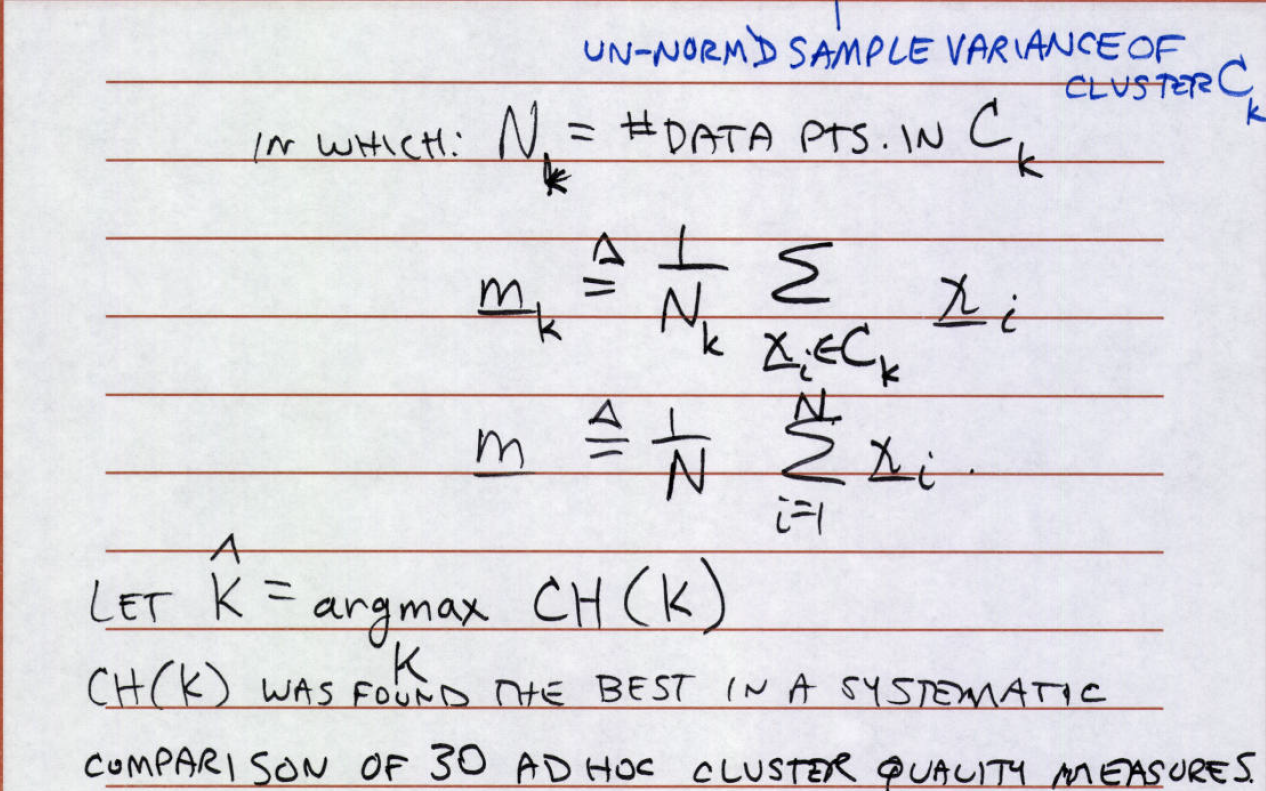 UN-NORM'D SAMPLE VARIANCE OF
CLUSTER C_k
IN WHICH: N_k = # DATA PTS. IN C_k
m_k ≜ 1/N_k Σ_{x_i ∈ C_k} x_i
m ≜ 1/N Σ_{i=1}^{N} x_i.
LET K̂ = argmax_K CH(K)
CH(K) WAS FOUND THE BEST IN A SYSTEMATIC
COMPARISON OF 30 AD HOC CLUSTER QUALITY MEASURES.